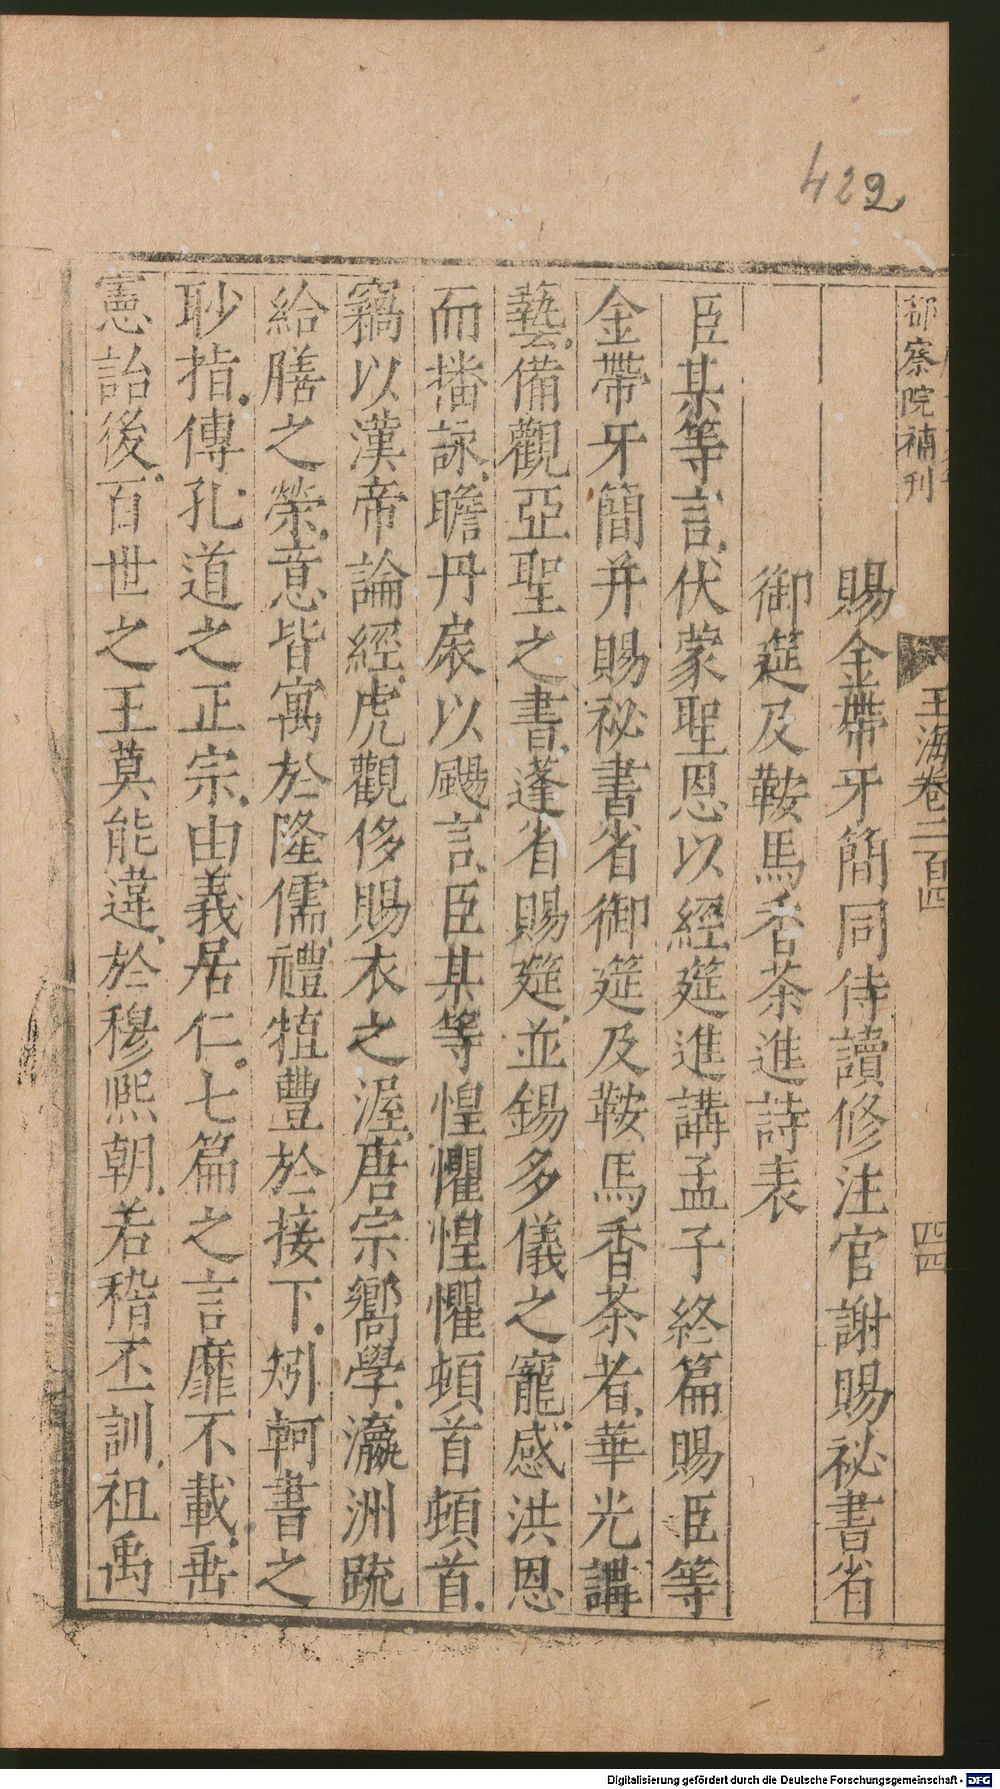 422
都察院補刊
玉海卷二百四
四四
賜金帶牙簡同侍讀修注官謝賜祕書省
御筵及鞍馬香茶進詩表
臣某等言伏蒙聖恩以經筵進講孟子終篇賜臣等
金帶牙簡并賜祕書省御筵及鞍馬香茶者華光講
藝備觀亞聖之書蓬省賜筵並錫多儀之寵感洪恩
而播詠瞻丹扆以颺言臣某等惶懼惶懼頓首頓首
竊以漢帝論經虎觀侈賜衣之渥唐宗嚮學瀛洲疏
給膳之榮意皆寓於隆儒禮犆豐於接下矧軻書之
眇指傳孔道之正宗由義居仁七篇之言靡不載垂
憲詒後百世之王莫能違於穆熙朝若稽丕訓祖禹
Digitalisierung gefördert durch die Deutsche Forschungsgemeinschaft - DFG